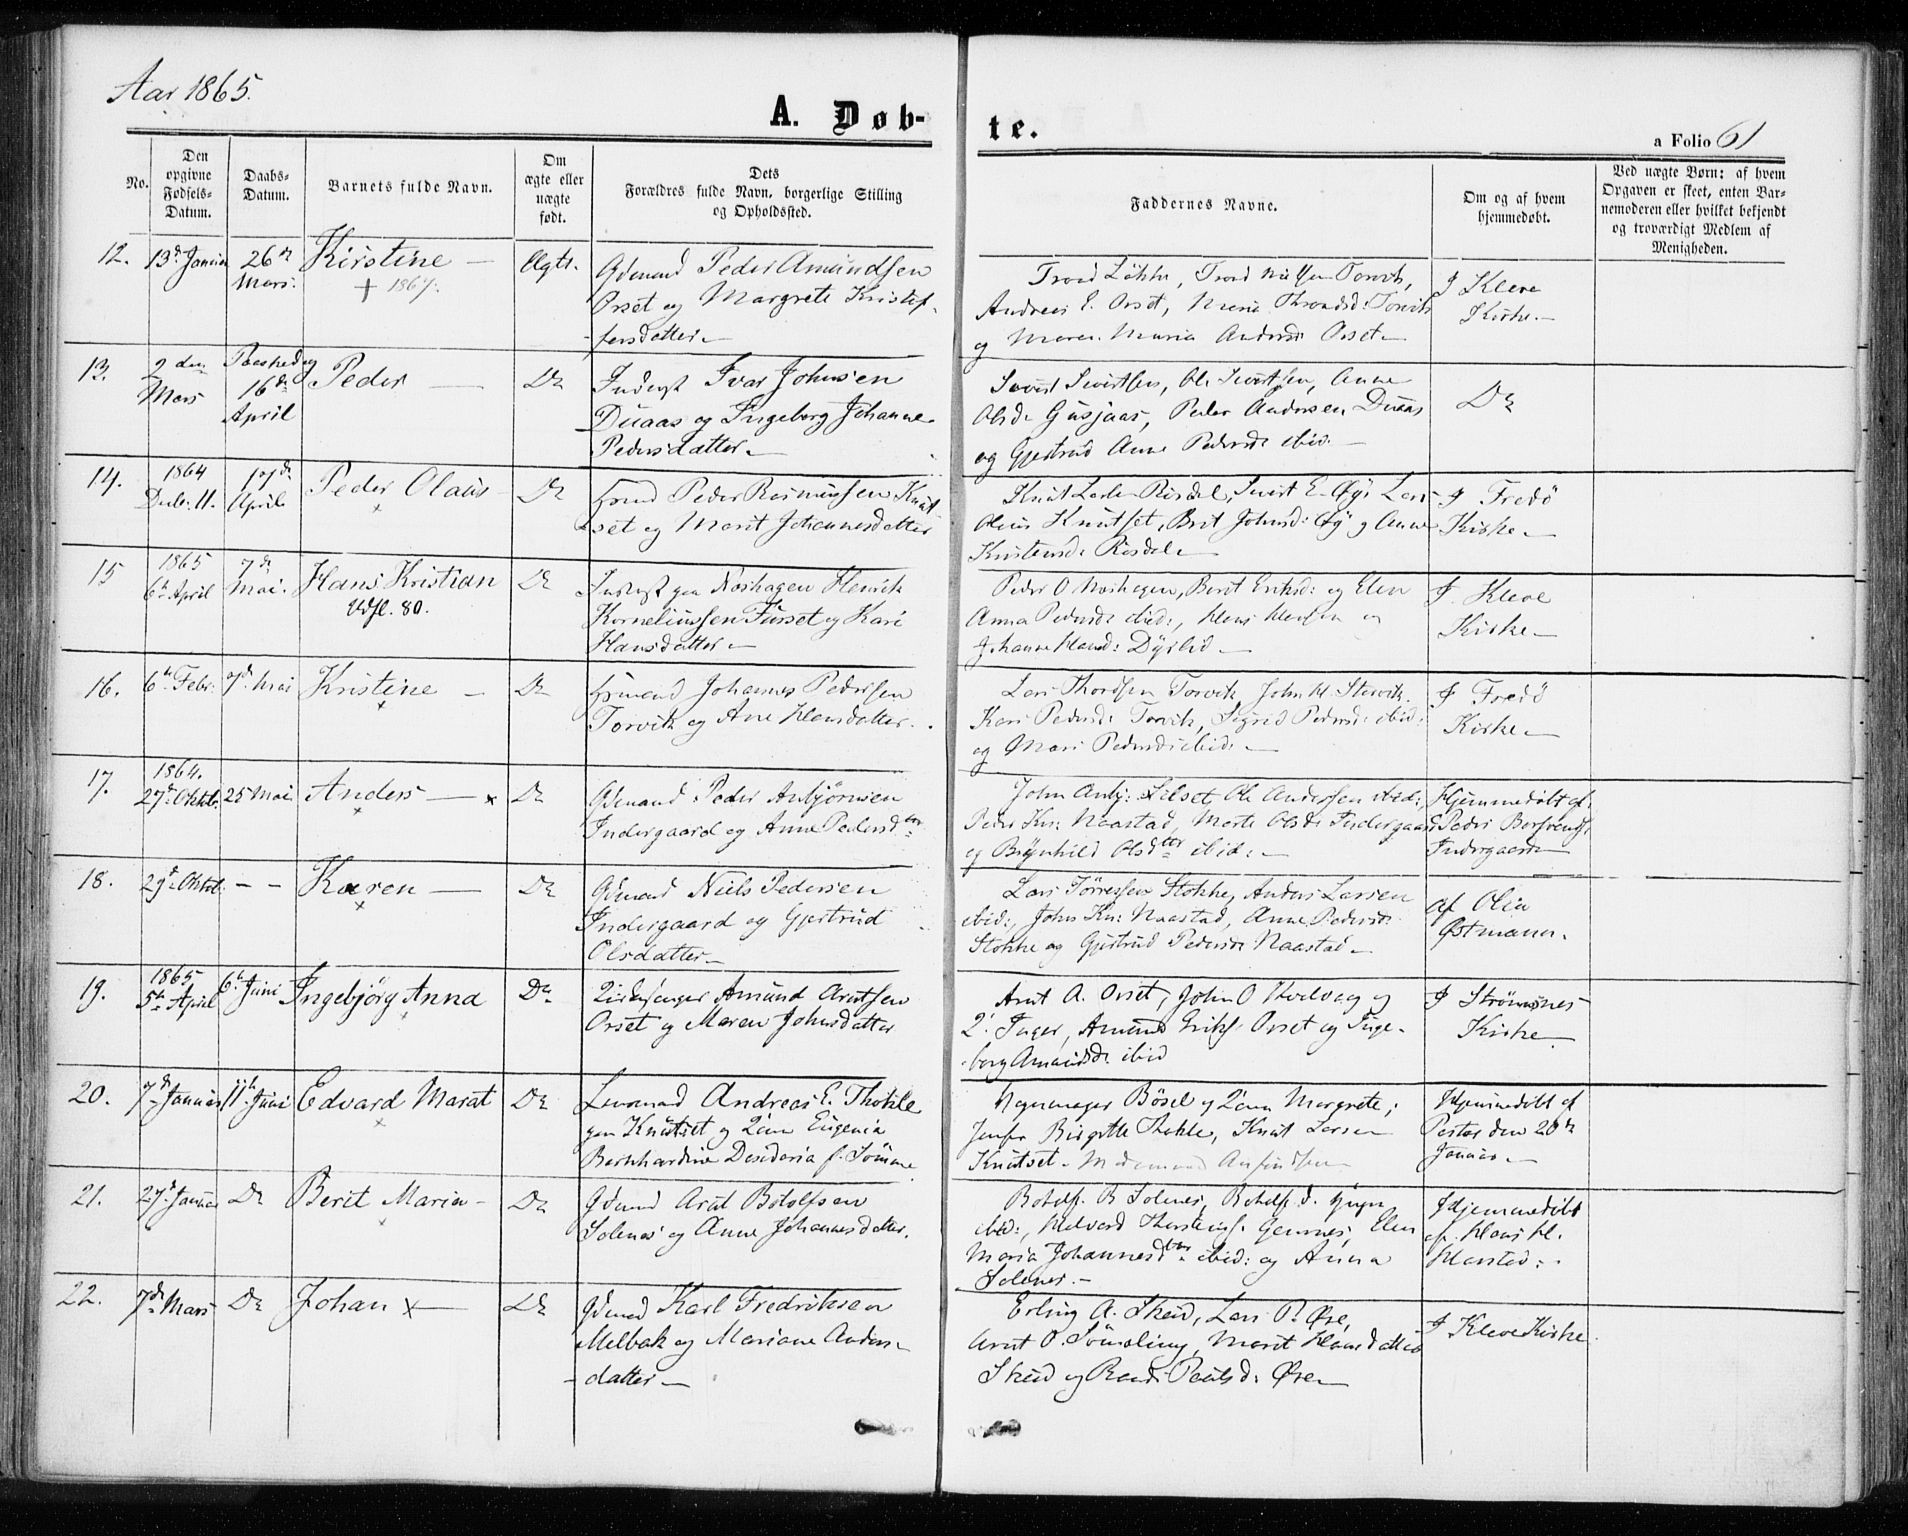 Aar 1865.
A. Døb-
te.
a Folio 61
No.
Den opgivne Fødsels-Datum.
Daabs-Datum.
Barnets fulde Navn.
Om ægte eller uægte født.
Dets Forældres fulde Navn, borgerlige Stilling og Opholdssted.
Faddernes Navne.
Om og af hvem hjemmedøbt.
Ved uægte Børn: af hvem Opgaven er skeet, enten Barnemoderen eller hvilket bekjendt og troværdigt Medlem af Menigheden.
12. 13d Januar 26de Mars. Kirstine — Ægte.
+ 1867.
Gdmand Peder Amundsen
Orset og Margrete Kristof-
fersdatter
Trond Løkke, Trond Nielsen Torvik,
Andreas E. Orset, Marie Throndsd: Torvik
og Maren Maria Andersd: Orset
I Kleve
Kirke.
13. 2den Mars Paaskedag 16de April Peder — Do
Inderst Ivar Johnsen
Duaas og Ingeborg Johanne
Pedersdatter
Sivert Sivertsen, Ole Sivertsen, Anne
Olsd: Gusjaas, Peder Andersen Duaas
og Gjertrud Anne Pedersd: ibid.
Do
14. 1864 Decbr. 11. 17de April Peder Olaus Do
Peder Rasmussen Knut-
set og Marit Johannesdatter
Knut Larsen Risdal, Sivert E. Øye Lars
Oleus Knutset, Brit Johnsd: Øy og Anne
Kristensd: Risdal
I Fredö
Kirke
15 1865 6te April 7de Mai. Hans Kristian Do
Udfl. 80.
Inderst paa Nöshagen Henrik
Korneliussen Furset og Kari
Hansdatter
Peder O Nöshagen, Berit Eriksd: og Elen
Anna Pedersd: ibid:, Hans Hansen og
Johanne Hansd: Dyrlid
I Kleve
Kirke
16. 6te Febr. 7de Mai Kristine — Do
Johannes Pedersen
Torvik og Ane Hansdatter.
Lars Thordsen Torvik, John H. Storvik.
Kari Pedersd: Torvik, Sigrid Pedersd: ibid:
og Mari Pedersd: ibid:
I Fredö
Kirke
17. 1864. 27de Oktbr. 25 Mai Anders — x Do
Gdmand Peder Anbjørnsen
Indergaard og Anne Pedersdtr
John Anbj: Silset Ole Andersen ibid:,
Peder Kn: Naastad, Marte Olsd: Indergaard
og Brynhild Olsdtr ibid:
Hjemmedøbt af
Peder
Indergaard
18. 29de Oktbr. - - Karen — Do
Gdmand Niels Pedersen
Indergaard og Gjertrud
Olsdatter
Lars Tørressen Stokke, Anders Larsen
ibid:, John Kn: Naastad, Anne Pedersd:
Stokke og Gjertrud Pedersd: Naastad
af Olia
Østmann.
19. 1865 5te April 6te Juni Ingebjörg Anna Do
Amund Arntsen
Orset og Maren Johnsdatter
Arnt A. Orset, John O Hodvaag og
Inger, Amund Eriks: Orset og Inge-
borg Amundsd: ibid
I Strömsnes
Kirke
20. 7de Januar 11te Juni Edvard Marat Do
Andreas E. Thokle
paa Knutset og Eugenia
Bernhardine Desideria f. Sömme
Bösel og Margrete,
Jomfr Birgitte Thokle, Knut Larsen
Knutset
Hjemmedøbt af
Pastor den 20de
Januar
21. 27de Januar Do Berit Maria Do
Gdmand Arnt Botolfsen
Solenes og Anne Johannesdatter.
Botolf B Solenes, Botolf
ibid:, Halvard Thorstens: Gamnes, Elen
Maria Johannesdtr ibid: og Anna
Solenes.
Hjemmedöbt
af Hans H.
Harstad.
22. 7de Mars Do Johan x — Do
Gdmand Karl Fredriksen
Melbak og Mariane Anders-
datter
Erling A. Skeid, Lars P. Øre,
Arnt O. Sömsling, Marit Hansdatter
Skeid og Randi Paulsd: Øre
I Kleve Kirke.